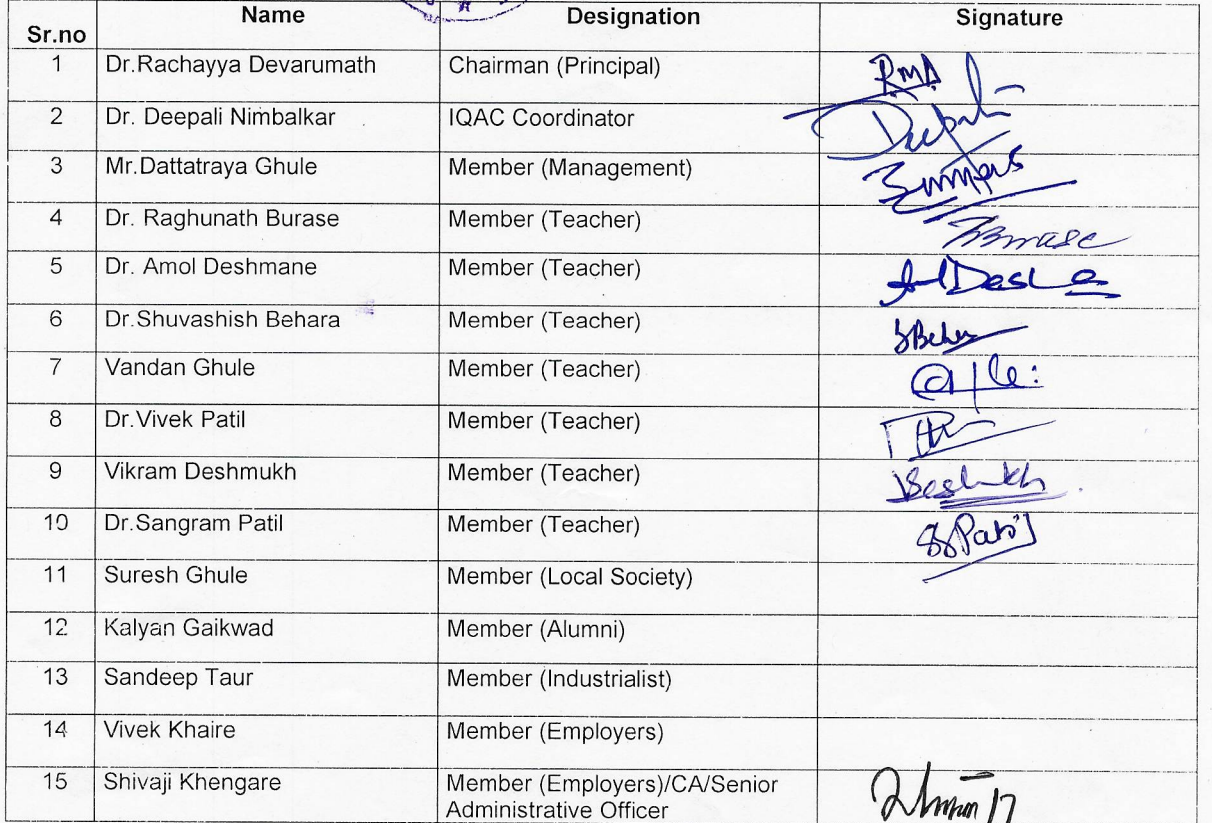 Sr.no Name Designation Signature
1 Dr.Rachayya Devarumath Chairman (Principal)
2 Dr. Deepali Nimbalkar IQAC Coordinator Deepali
3 Mr.Dattatraya Ghule Member (Management)
4 Dr. Raghunath Burase Member (Teacher)
5 Dr. Amol Deshmane Member (Teacher)
6 Dr.Shuvashish Behara Member (Teacher)
7 Vandan Ghule Member (Teacher)
8 Dr.Vivek Patil Member (Teacher)
9 Vikram Deshmukh Member (Teacher)
10 Dr.Sangram Patil Member (Teacher)
11 Suresh Ghule Member (Local Society)
12 Kalyan Gaikwad Member (Alumni)
13 Sandeep Taur Member (Industrialist)
14 Vivek Khaire Member (Employers)
15 Shivaji Khengare Member (Employers)/CA/Senior
Administrative Officer